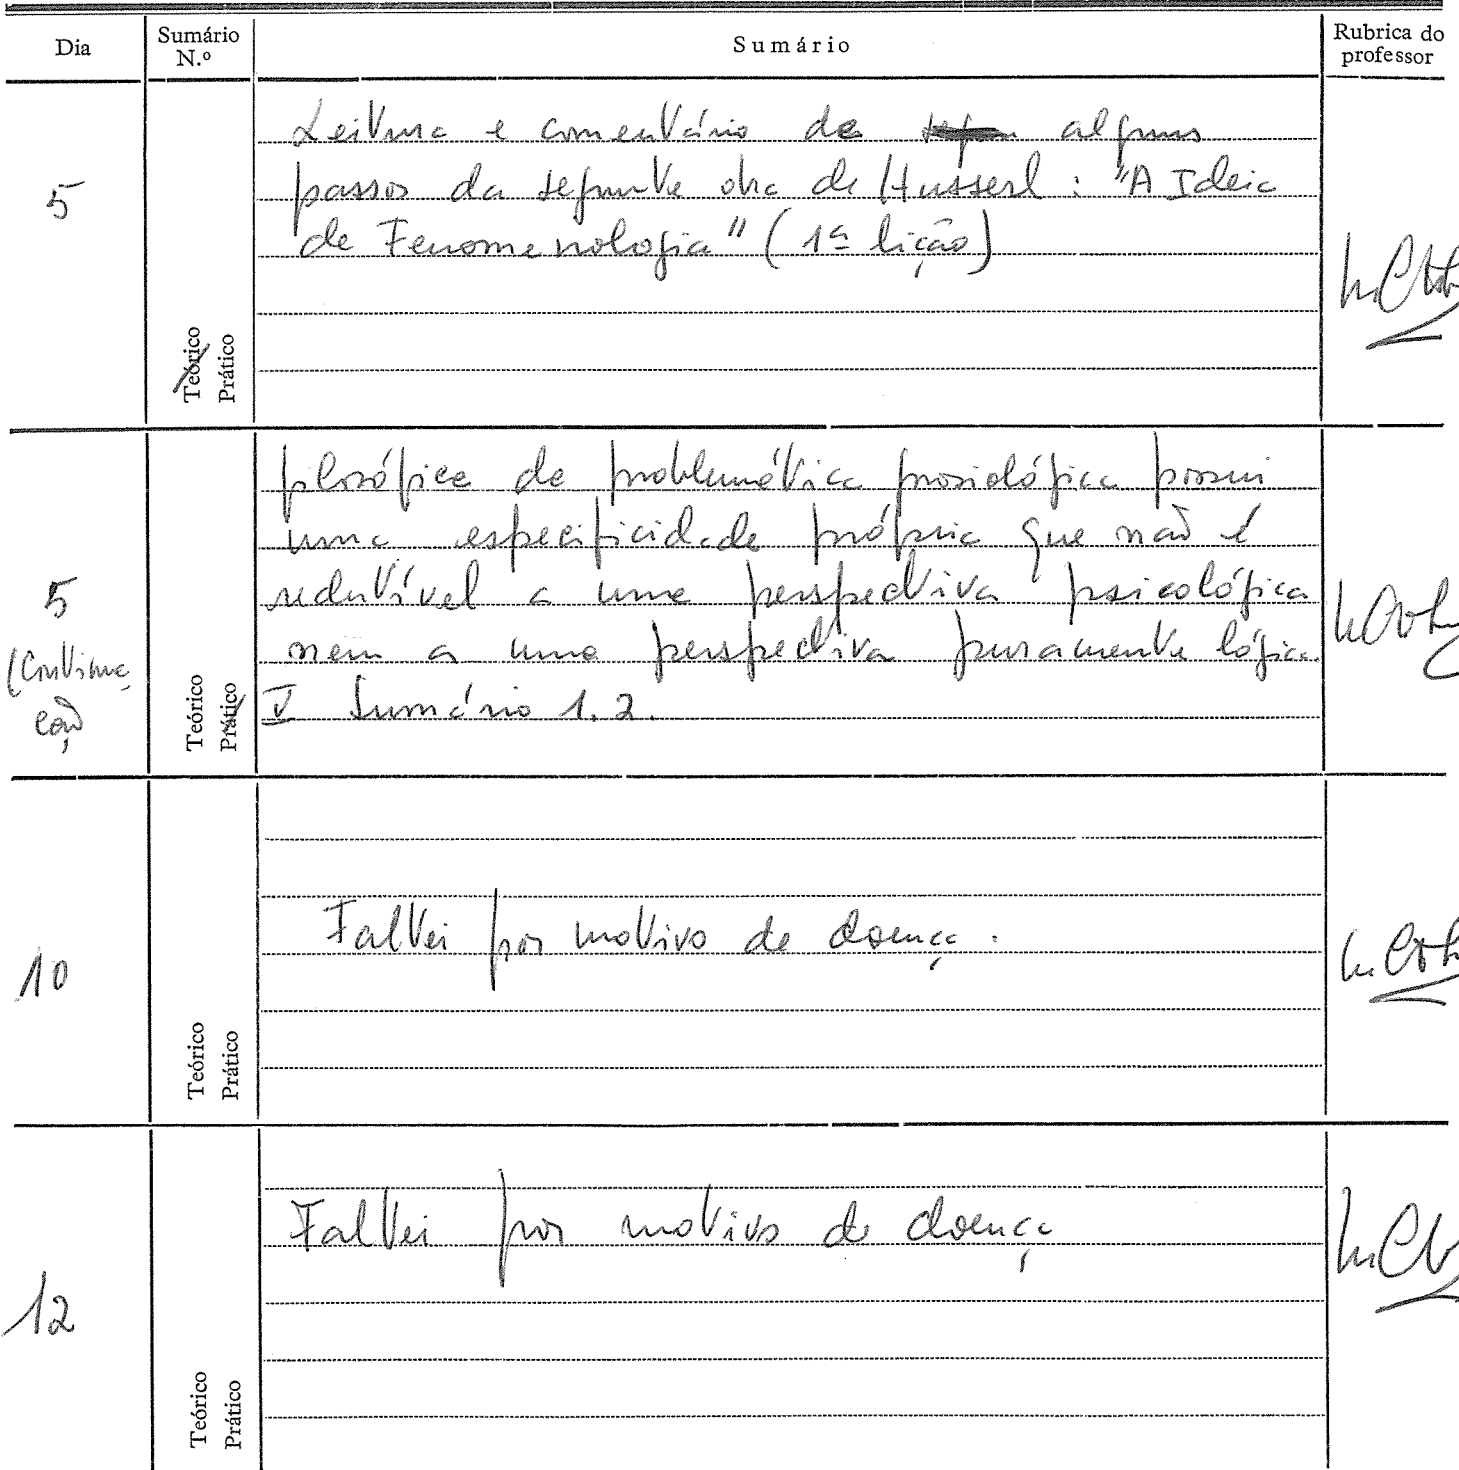 Dia
Sumário N.º
Sumário
Rubrica do professor
Leitura e comentário de alguns
passos da seguinte obra de Husserl : "A Ideia
de Fenomenologia" (1ª lição)
5
Teórico
Prático
filosófica da problemática gnosiológica possui
uma especificidade própria que não é
redutível a uma perspectiva psicológica
nem a uma perspectiva puramente lógica.
V Sumário 1.2.
5
(Continua
ção
Teórico
Prático
Faltei por motivo de doença.
10
Teórico
Prático
Faltei por motivo de doença
12
Teórico
Prático